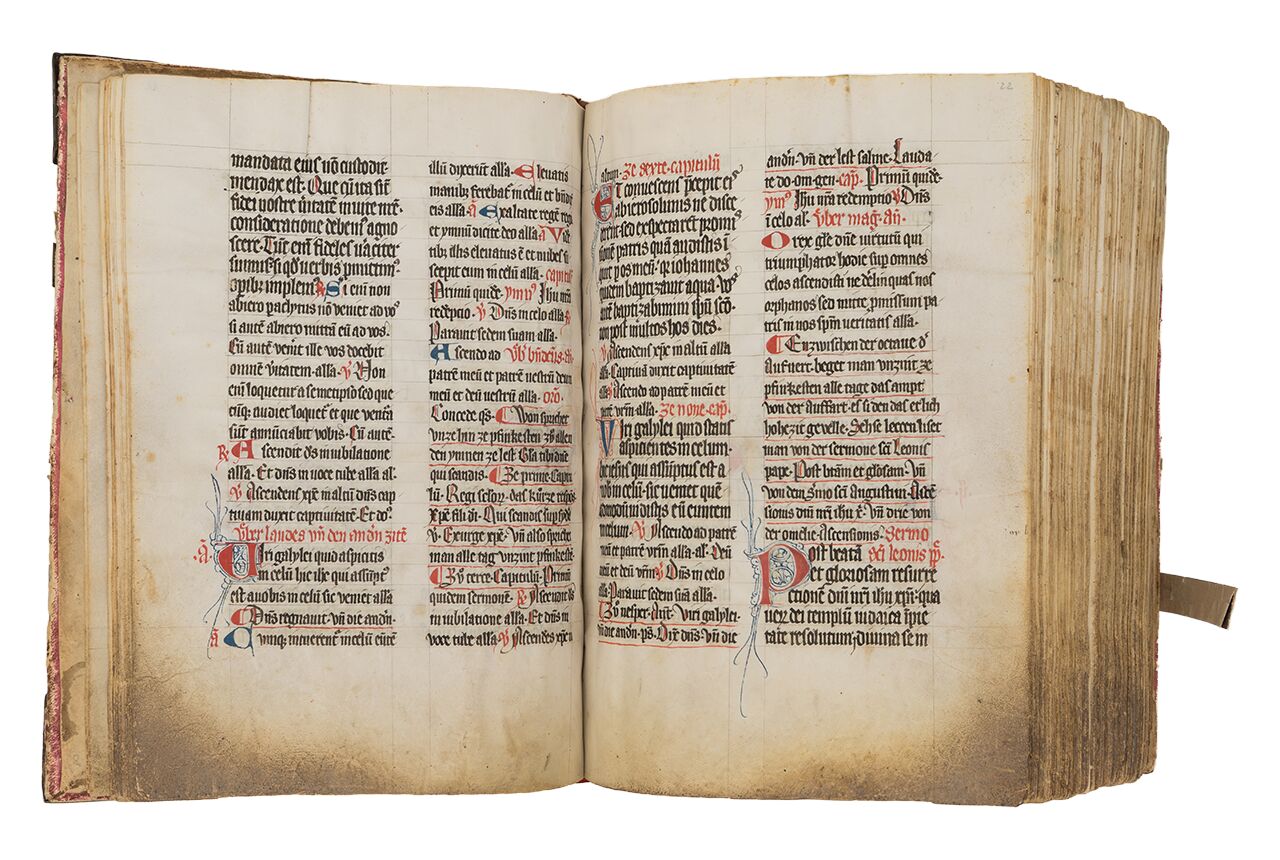 mandata eius nō custodit
mendax est. Que q̄ ita sūt
fidei vostre
consideratione debent agno
scere. Tūc enī fideles
sum⁹ si qđ verbis
opibꝫ implem⁹ ℟ Si enī non
abiero paclytus nō veniet ad vo⁹
si autē abiero mittā eū ad vos.
Cū autē ven̄it ille vos docebit
omnē v̄itatem. alla. ℣ Non
enī loquetur a semetip̄o sed que
cūqꝫ audiet loquet̄ et que ventā
sūt annūciabit vobis. Cū autē.
℟ Ascendit ds̄ in iubilatione
alla. Et dn̄s in voce tube alla al.
℣ Ascendens xp̄c in altū dn̄s cap
tiuam duxit captiuitatē. Et do⁹.
Vber laudes vn̄ den andn̄ zitē
A Viri galylei quid aspicitis
in celū hic ih̄c qui assūpt⁹
est a vobis in celū sic veniet alla
Dn̄s regnauit. vn̄ die andn̄.
A Cūmqꝫ intuerent̄ in celū eūtē
illū dixerūt alla. Eleuatis
manibꝫ ferebat̄ in celū et bn̄dix
eis alla. A Exaltate regē regū
et ymnū dicite deo alla. A Vidē
tibꝫ illis eleuatus ē et nubes su
scepit eum in celū alla. capitu
Primū quidē. ymn⁹ Ih̄u nr̄a
redēptio. ℣ Dn̄s in celo alla ℟
Parauit sedem suam alla.
Ascendo ad Vb̄ bn̄dcūs. A
patrē meū et patrē vestrū deum
meū et deū vestrū alla. oro.
Concede qs̄. Mon sprichet
vnze hin ze pfinkesten zv̊ allen
den ymnen ze lest Gl̄a tibi dn̄e
qui scandis. Ze prime. Capitu
lū. Regi seclor̄. das kurze respōs
Xp̄e fili di. Qui scandis sup sydē
℣. Exurge xp̄e. vn̄ also sprichet
man alle tag vnzint pfinkestē
Zv̊ terce. Capitulū. Primū
quidem sermonē. ℟ Ascendit ds̄
in iubilatione alla. Et dn̄s in
voce tube alla ℣ Ascendes xp̄c in
altum. Ze sexte. capitulū
Et conuescens p̄cepit eis
ab ierosolimis ne disce
erent. sed expectarēt promis
sionē patris quā audistis i
quit p os meū. qr iohannes
quidem baptizauit aqua. vos
autē baptizabimini spū sc̄o
non post mltos hos dies.
Ascendens xp̄c in altū alla
alla. Captiuā duxit captiuitatē
alla ℣ Ascendo ad patrē meū et
patrē vrm̄ alla. Ze none. cap.
Viri galylei quid statis
aspicientes in celum.
hic iesus qui assūptus est a
vobis in celū. sic veniet quē
admodū vidistis eū euntem
in celum. ℣ Ascendo ad patrē
meū et patrē vrm̄ alla al. Deū
meū et deū vrm̄ ℣ Dn̄s in celo
alla. Parauit sedem suā alla.
Zv̊ vesper. Ant̄. Viri galylei.
vn̄ die andn̄. ps̄. Dix̄ dn̄s. vn̄ die
22
andn̄. vn̄ der lest salme. Lauda
te do. om. gen. cap. Primū quidē.
ymn⁹ Ih̄u nr̄a redemptio ℣ Dn̄s
i celo al. Vber mag. an̄.
O rex gl̄e dn̄e virtutū qui
triumphator hodie sup omnes
celos ascendisti ne derlinquas nos
orphanos sed mitte pmissum pa
tris in nos spm̄ veritatis alla.
Enzwischen der octaue d̄
Auffuert. beget man vnzint ze
pfinkesten alle tage das ampt
von der auffart. es si den das etlich
hohezit geuelle. Sehse leccen liset
man von der sermone sc̄i Leonis
pape. Post beatam et gl̄osam. vn̄
von dem s̄mo sc̄i Augustini. Ascē
sionis dnī nr̄i ih̄u x̄. vn̄ drie von
der omelie. Ascensionis. Sermo
Post beatā sc̄i leonis p̄p.
et gloriosam resurre
ctionē dnī nr̄i ih̄u xp̄i. qua
uez dei templū iudaica īpie
tate resolutum; diuina se in